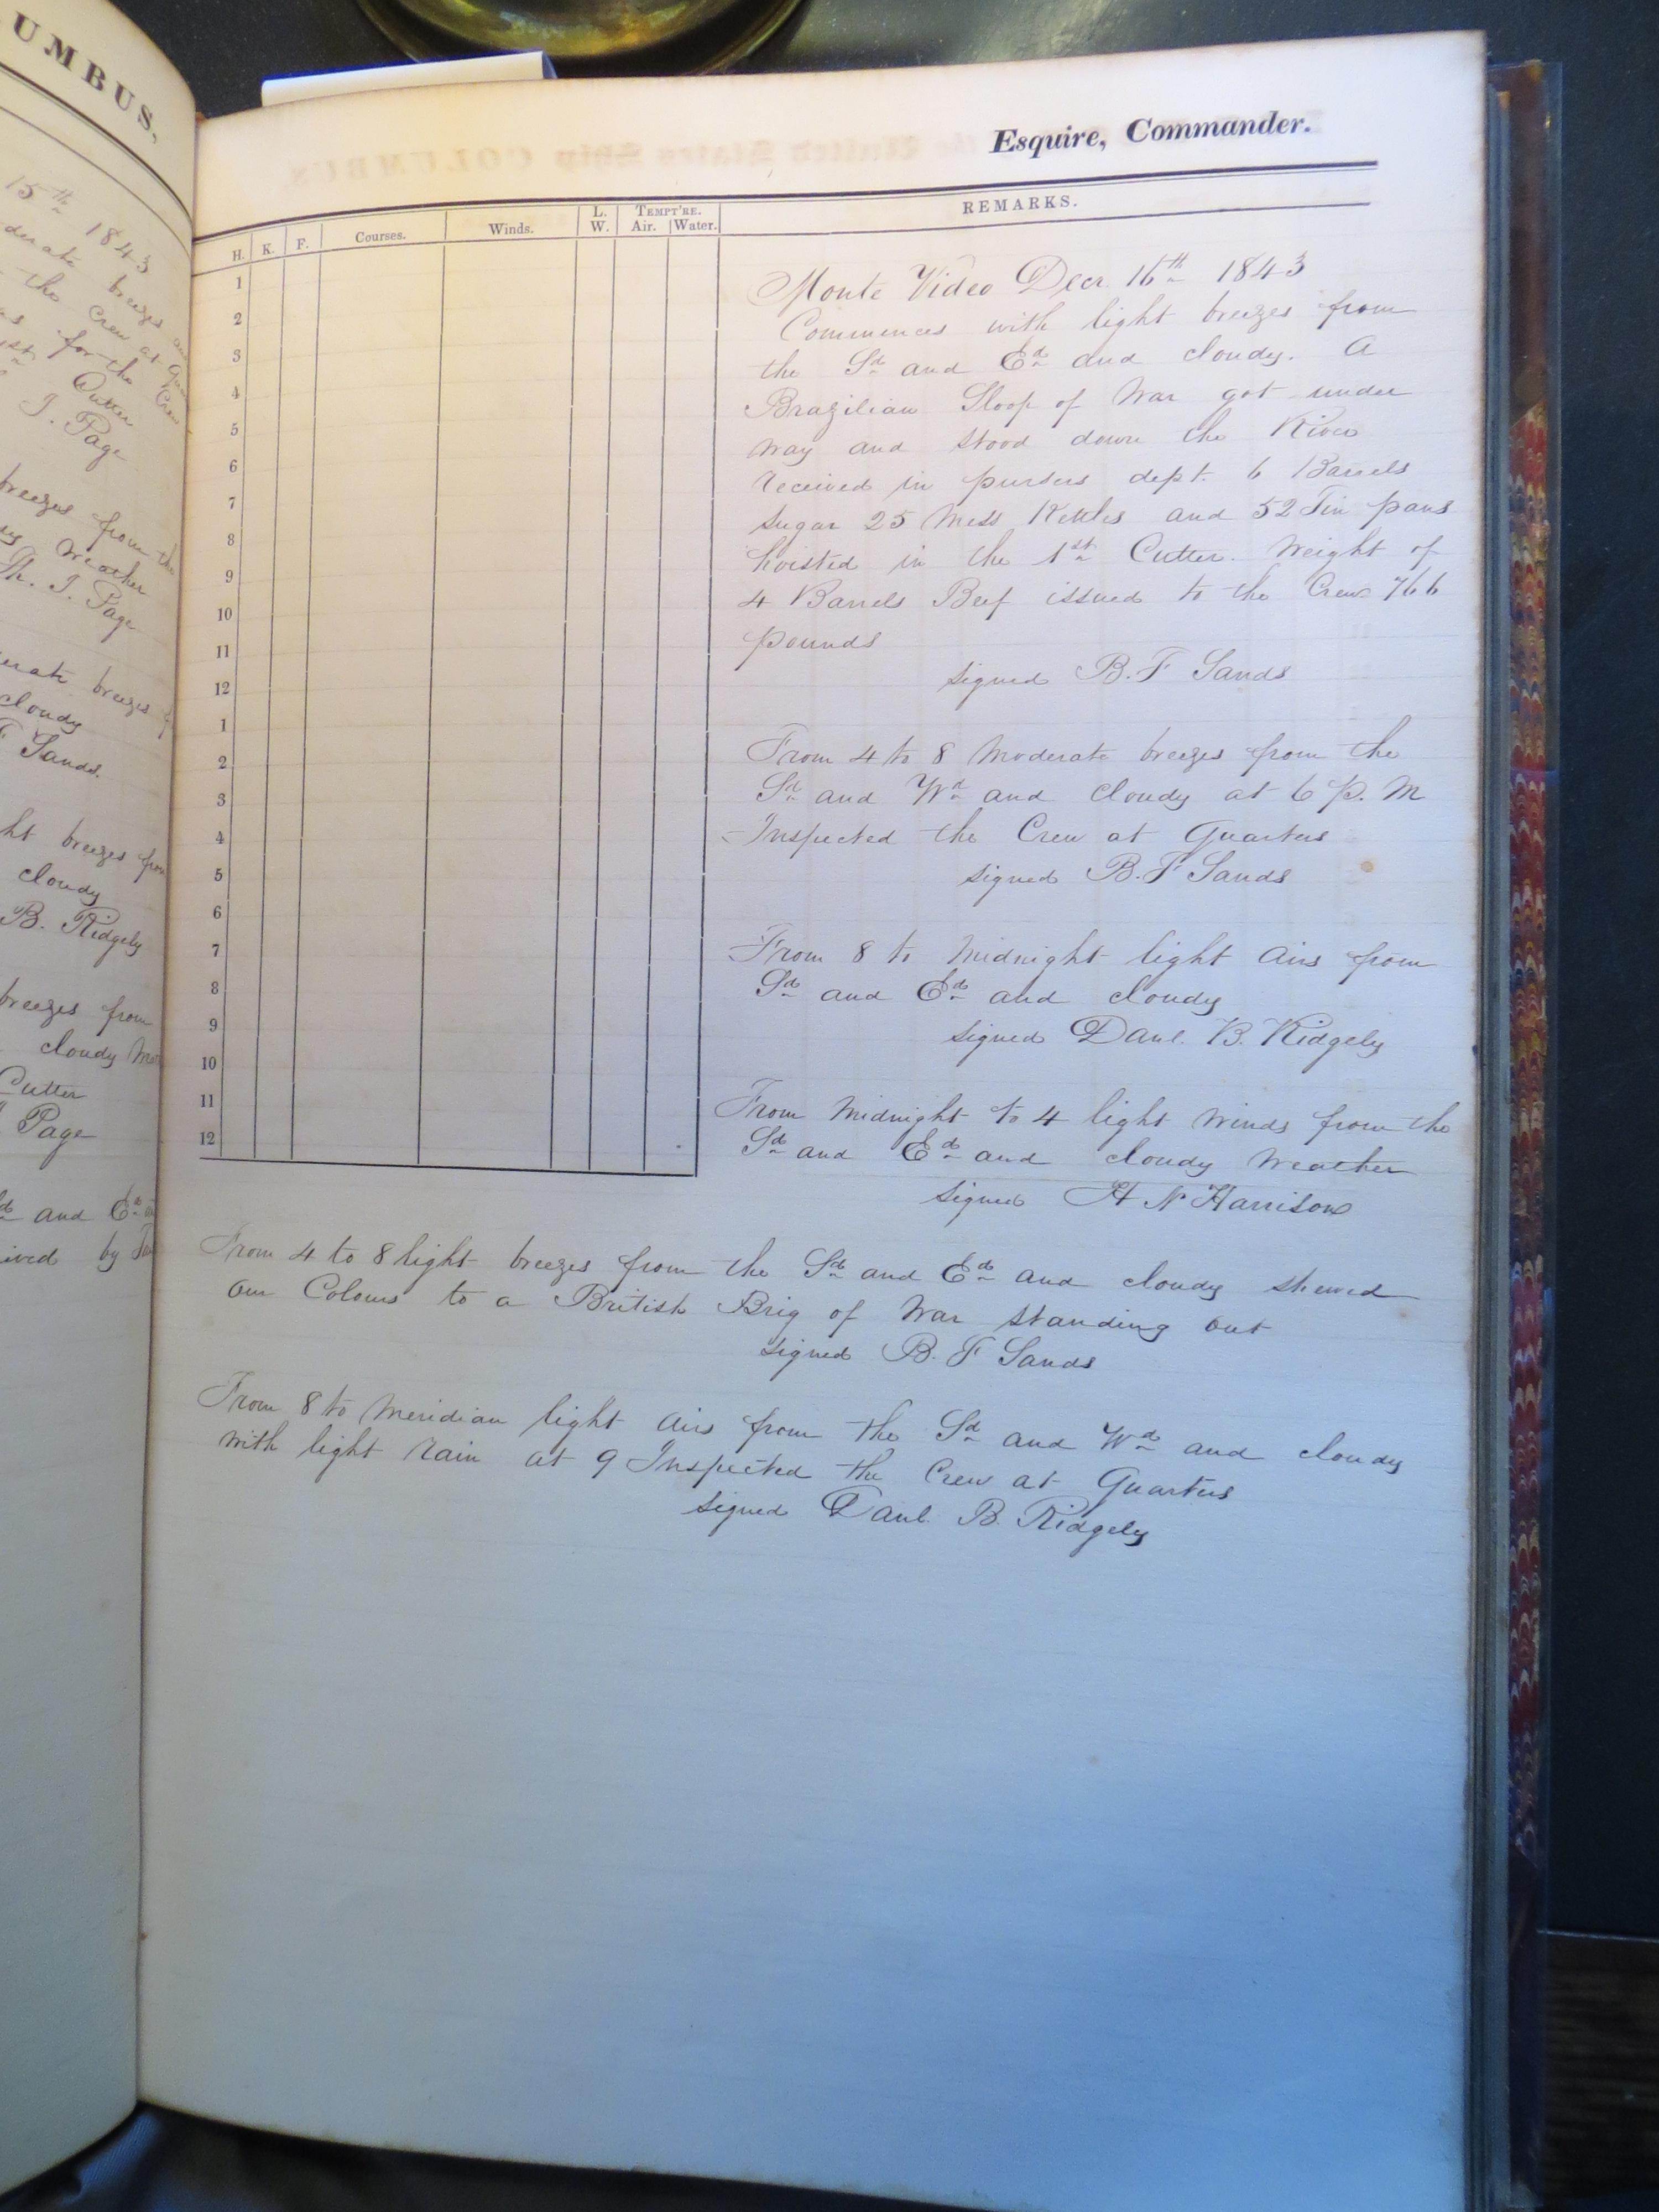 UMBUS,
15th 1843
derate breezes and
the Crew at
for the
Cutter
J. Page
breezes from the
Weather
Th. J. Page
breezes
cloudy
Sands.
ht breezes from
cloudy
B. Ridgely
breezes from
cloudy
Cutter
Page
and Ed
ived by
Esquire, Commander.
H. K. F. Courses. Winds. L. W. TEMPT'RE. Air. Water. REMARKS.
1
2
3
4
5
6
7
8
9
10
11
12
1
2
3
4
5
6
7
8
9
10
11
12
Monte Video Decr. 16th 1843
Commences with light breezes from
the Sd and Ed and cloudy. A
Brazilian Sloop of War got under
way and stood down the River
received in pursers dept. 6 Barrels
Sugar 25 Mess Kettles and 52 Tin pans
hoisted in the 1st Cutter. Weight of
4 Barrels Beef issued to the Crew 766
pounds
signed B. F Sands
From 4 to 8 Moderate breezes from the
Sd and Wd and cloudy at 6 P. M
Inspected the Crew at Quarters
signed B. F Sands
From 8 to Midnight light airs from
Sd and Ed and cloudy
signed Danl. B. Ridgely
From Midnight to 4 light Winds from the
Sd and Ed and cloudy Weather
signed H N Harrison
From 4 to 8 light breezes from the Sd and Ed and cloudy shewed
our Colours to a British Brig of War standing out
signed B. F Sands
From 8 to Meridian light airs from the Sd and Wd and cloudy
with light rain at 9 Inspected the Crew at Quarters
signed Danl. B. Ridgely